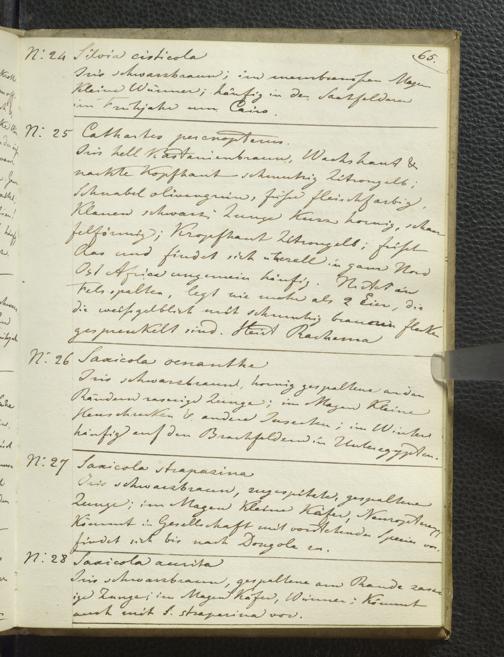 65.
N: 24 Silvia cisticola
Iris schwarzbraun; im membranosen Magen
kleine Würmer; häufig in den Saatfeldern
im Frühjahr um Cairo.
N: 25 Cathartes percnopterus.
Iris hell Kastanienbraun, Wachshaut &
nackte Kopfhaut schmutzig Zitrongelb;
Schnabel olivengrün, füße fleischfarbig,
Klauen schwarz; Zunge Kurz hornig, schau
felförmig; Kropfhaut Zitrongelb; frißt
Aas und findet sich überall in ganz Nord
Ost Africa ungemein häufig. Nistet in
Felsspalten, legt nie mehr als 2 Eier, die
die weißgelblich mit schmutzig braunen flecken
gesprenkelt sind. Heißt Rachama
N: 26 Saxicola oenanthe
Iris schwarzbraun, hornig gespaltene an den
Rändern Zunge; im Magen kleine
Heuschrecken & andere Insecten; im Winter
häufig auf den Brachfeldern in Unteregypten.
N: 27 Saxicola strapazina
Iris schwarzbraun, zugespitzte, gespaltene
Zunge; im Magen kleine Käfer, Neuroptera
Kommt in Gesellschaft mit vorstehender Species vor,
findet sich bis nach Dongola
N: 28 Saxicola aurita
Iris schwarzbraun, gespaltene am Rande zaser
ige Zunge; im Magen Käfer, Würmer: Kommt
auch mit S. strapazina vor.